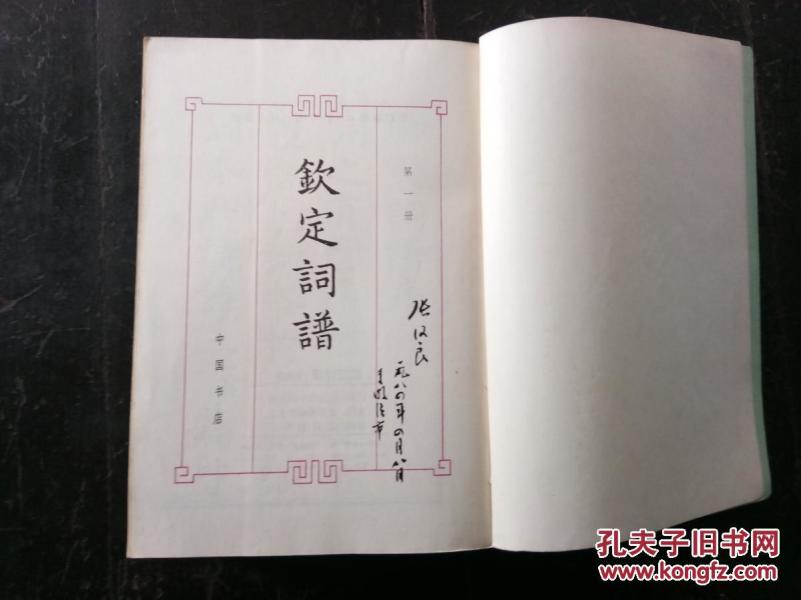 第一册
欽定詞譜
中国书店
一九八四年四月八日
孔夫子旧书网
www.kongfz.com